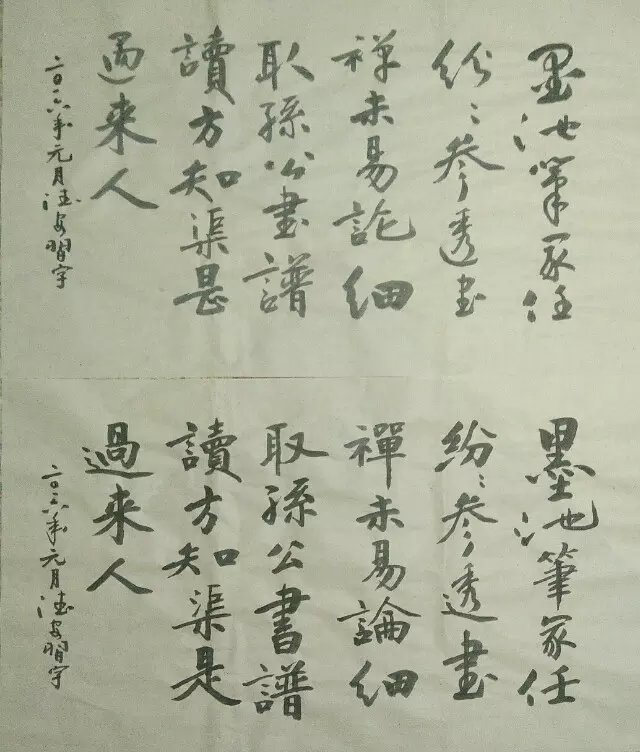 墨池筆冢任
紛〻參透書
禪未易論細
取孫公書譜
讀方知渠是
過來人
二〇一六年元月習字
墨池筆冢任
紛〻參透書
禪未易論細
取孫公書譜
讀方知渠是
過來人
二〇一六年元月習字